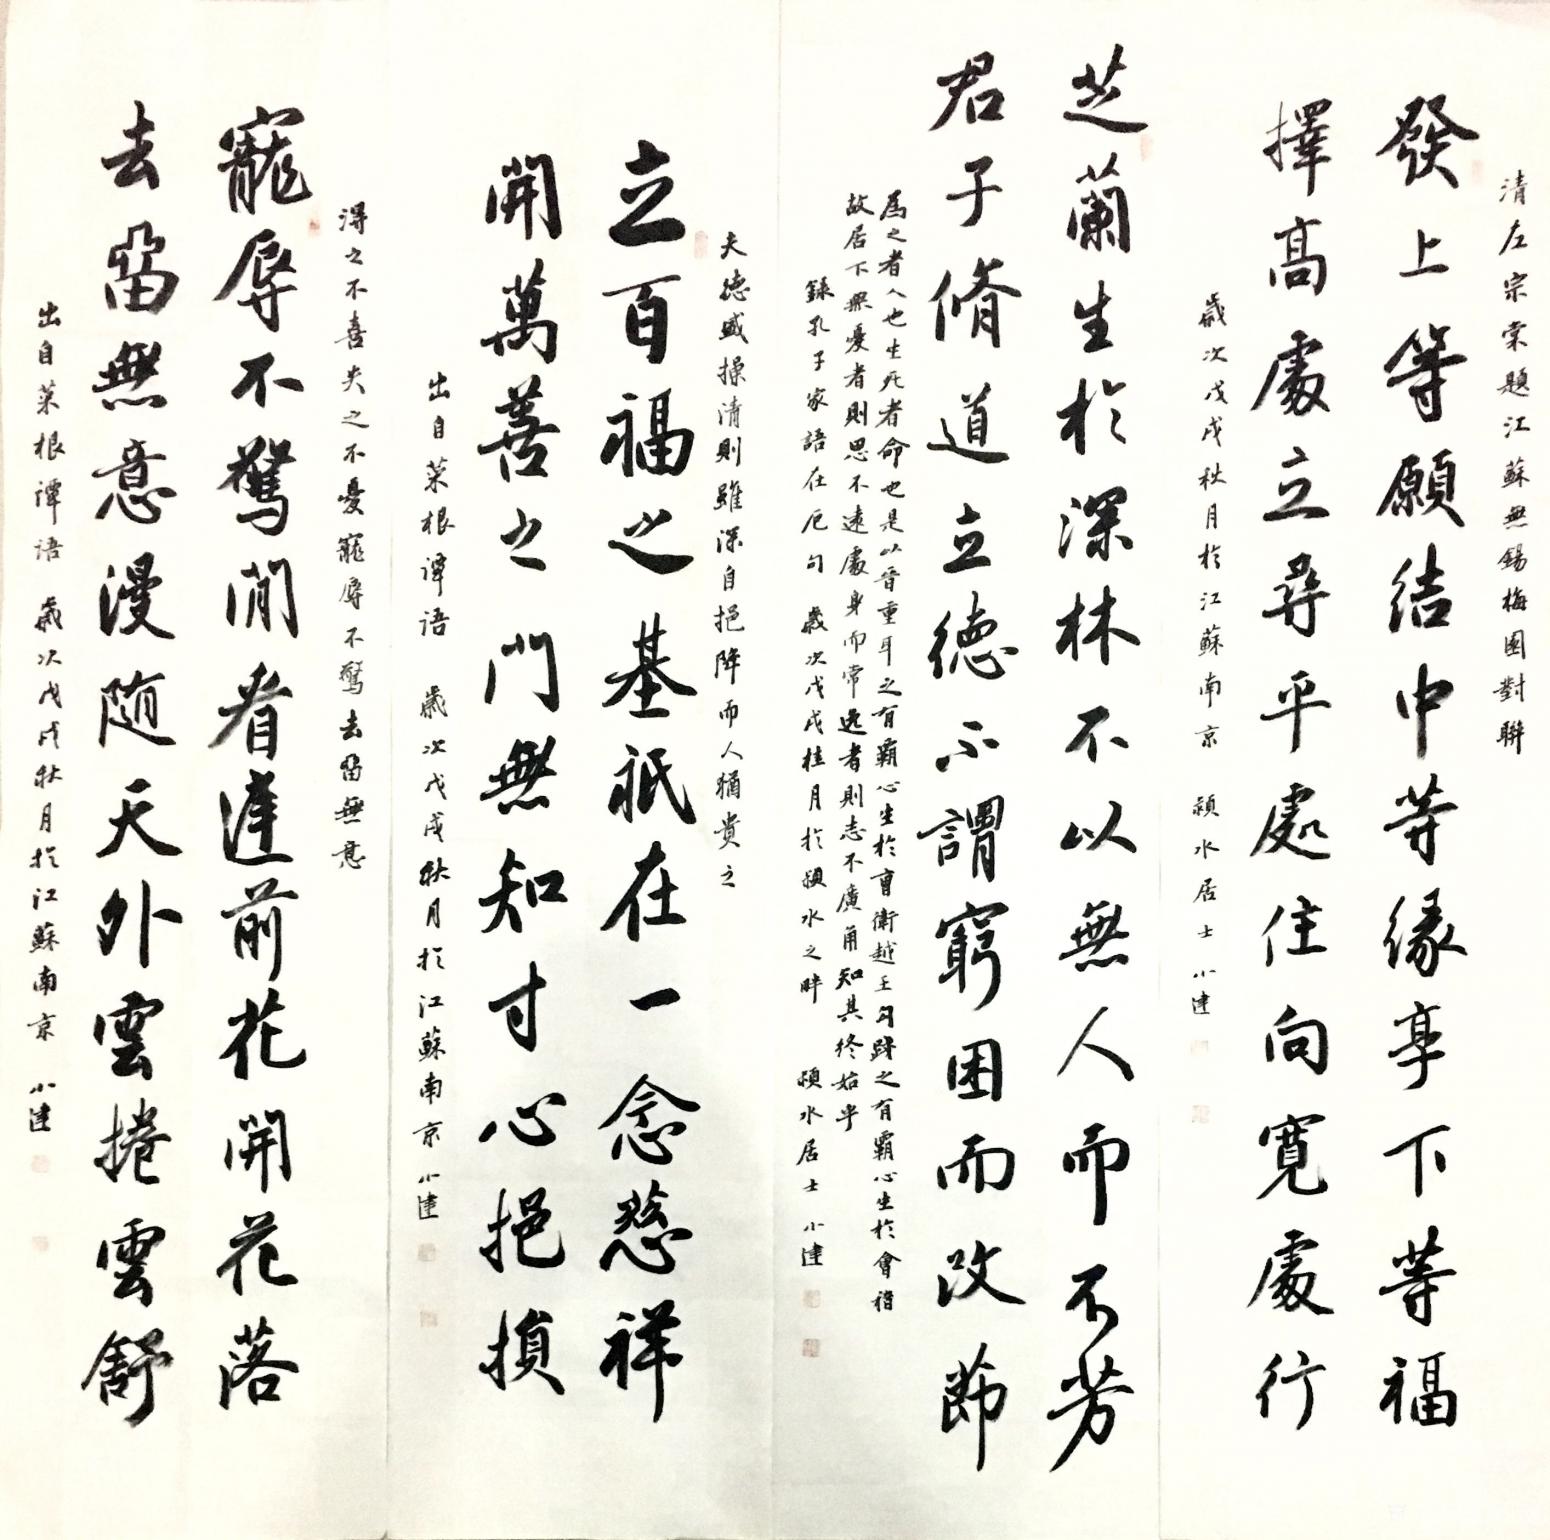 清左宗棠題江蘇無錫梅園對聯
發上等願結中等緣享下等福
擇高處立尋平處住向寬處行
歲次戊戌秋月於江蘇南京 潁水居士 小建
芝蘭生於深林不以無人而不芳
君子脩道立德不謂窮困而改節
為之者人也生死者命也是以晉重耳之有霸心生於曹衛越王勾踐之有霸心生於會稽
故居下無憂者則思不遠處身而常逸者則志不廣庸知其終始乎
錄孔子家語在厄句 歲次戊戌桂月於潁水之畔 潁水居士 小建
夫德盛操清則雖深自挹降而人猶貴之
立百福之基祇在一念慈祥
開萬善之門無知寸心挹損
出自菜根譚語 歲次戊戌秋月於江蘇南京 小建
得之不喜失之不憂寵辱不驚去留無意
寵辱不驚閒看達前花開花落
去留無意漫隨天外雲捲雲舒
出自菜根譚语 歲次戊戌秋月於江蘇南京 小建